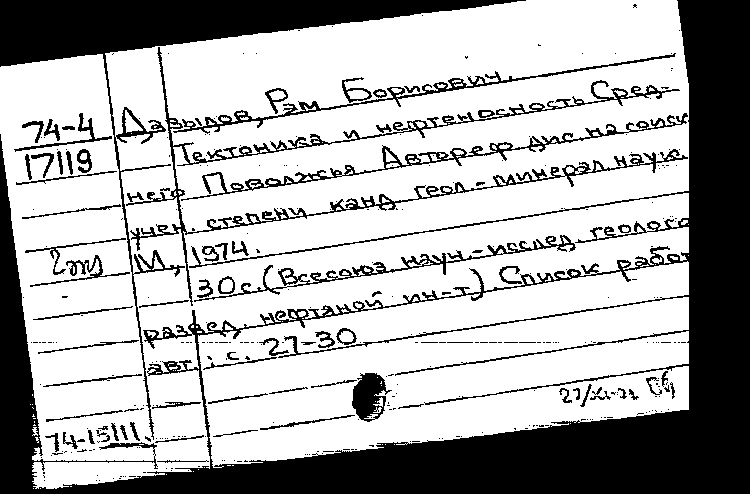 74-4 Давыдов, Рэм Борисович.
17119 Тектоника и нефтеносность Сред-
него Поволжья Автореф дис. на соиск
учен. степени канд геол.-минерал наук.
2 экз М., 1974.
30с. (Всесоюз. науч.-исслед. геолого
развед. нефтяной ин-т) Список работ
авт.: с. 27-30.
74-15111.